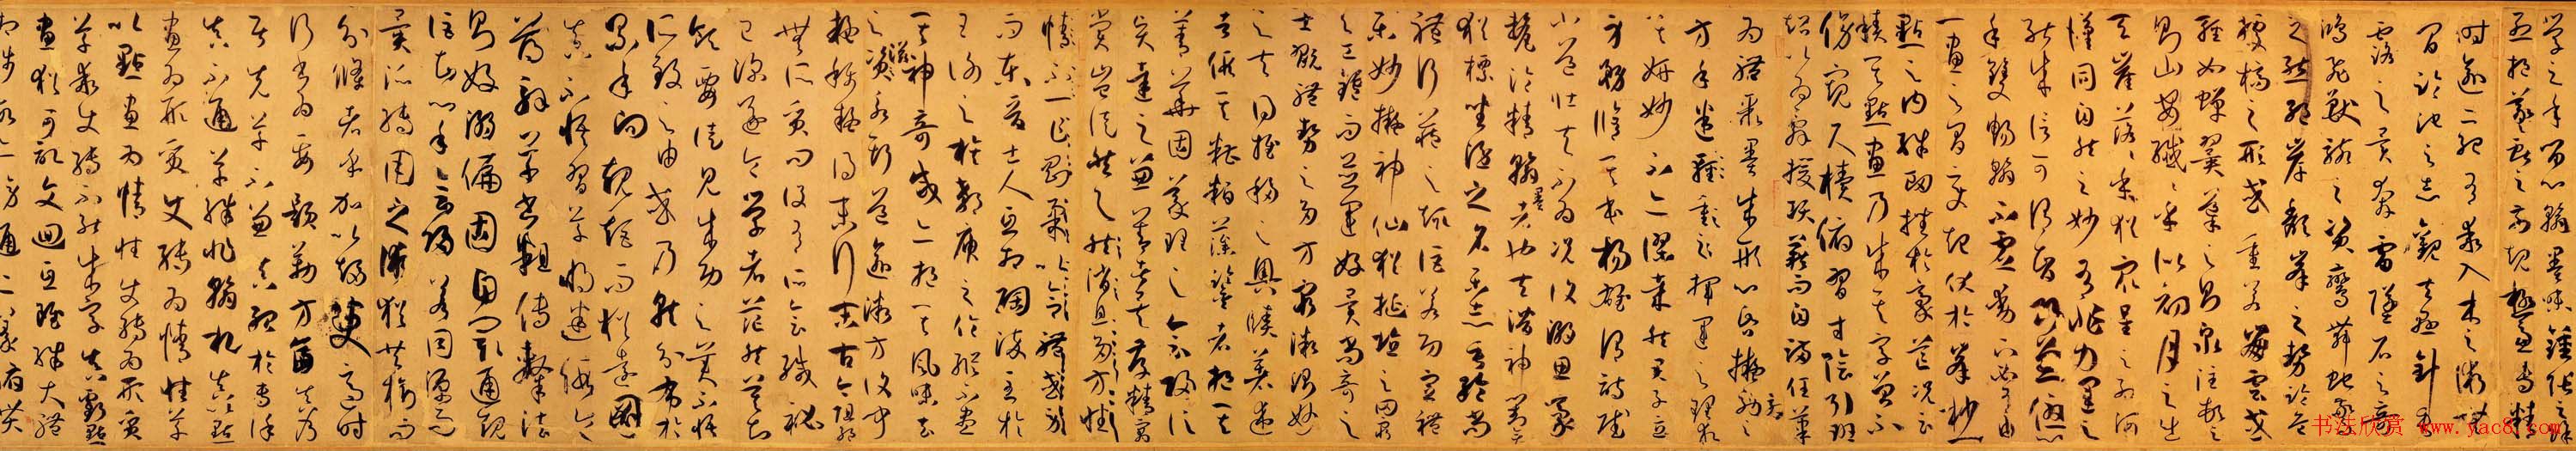 學之年留心翰墨味鍾張之餘
烈挹羲獻之前規極慮專精
時逾二紀有乖入木之術無
間臨池之志觀夫懸針垂
露之異奔雷墜石之奇
鴻飛獸駭之資鸞舞蛇驚
之態絕岸頹峯之勢臨危
據槁之形或重若崩雲或
輕如蟬翼導之則泉注頓之
則山安纖纖乎似初月之出
天崖落落乎猶衆星之列河
漢同自然之妙有非力運之
能成信可謂智巧兼優心
手雙暢翰不虛動下必有由
一畫之間變起伏於峯杪一
點之內殊衄挫於豪芒況云
積其點畫乃成其字曾不
傍窺尺犢俯習寸陰引班
超以為辭援項籍而自滿任筆
為體聚墨成形心昏擬效之
方手迷揮運之理求
其妍妙不亦謬哉然君子立
身務脩其本楊雄謂詩賦
小道壯夫不為況復溺思豪
氂淪精翰墨者也夫潛神對奕
猶標坐隱之名樂志垂綸尚
體行藏之趣詎若功宣禮
樂妙擬神仙猶挻埴之罔窮
與工鑪而並運好異尚奇之
士翫體勢之多方窮微測妙
之夫得推移之奧賾著述
者假其糟粕藻鑒者挹其
菁華固義理之會歸信
賢達之兼善者矣存精寓
賞豈徒然與
而東晉士人互相陶淬至於
王謝之族郗庾之倫縱不盡
其神奇咸亦挹其風味去
之滋永斯道逾微方復聞
疑稱疑得末行末古今阻絕
無所質問設有所會緘秘
已深遂令學者茫然莫知
領要徒見成功之美不悟
所致之由或乃就分布於
累年向規矩而猶遠圖
真不悟習草將迷假令
薄解草書粗傳隸法
則好溺偏固自閡通規
詎知心手會歸若同源而
異派轉用之術猶共樹而
分條者乎加以趨變適時
行書為要題勒方畐真乃
居先草不兼真殆於專謹
真不通草殊非翰札真以點
畫為形質使轉為情性草
以點畫為情性使轉為形質
草乖使轉不能成字真虧點
畫猶可記文迴互雖殊大體
相涉故亦傍通二篆俯貫
书法欣赏 www.yac8.com